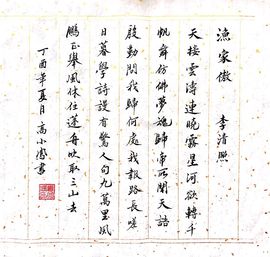 漁家傲 李清照
天接雲濤連曉霧星河欲轉千
帆舞仿佛夢魂歸帝所聞天語
殷勤問我歸何處我報路長嗟
日暮學詩謾有驚人句九萬里風
鵬正舉風休住蓬舟吹取三山去
丁酉年夏月高小書